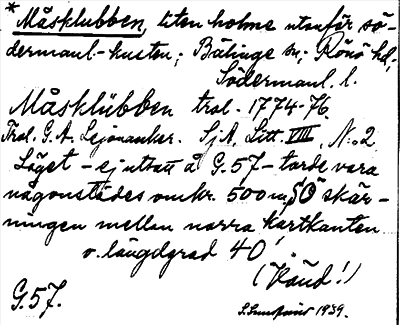 * Måsklubben, liten holme utanför sö-
dermanl.-kusten; Bälinge sn; Rönö hd,
Södermanl. l.
Måsklübben trol. 1774-76.
Trol. G.A. Lejonanker. SjA, Litt. VIII, No. 2
Läget - ej utsatt å G. 57 - torde vara
någonstädes omkr. 500 m SO skär-
ningen mellan norra kartkanten
o. längdgrad 40'
(Vänd!)
G. 57.
1939.